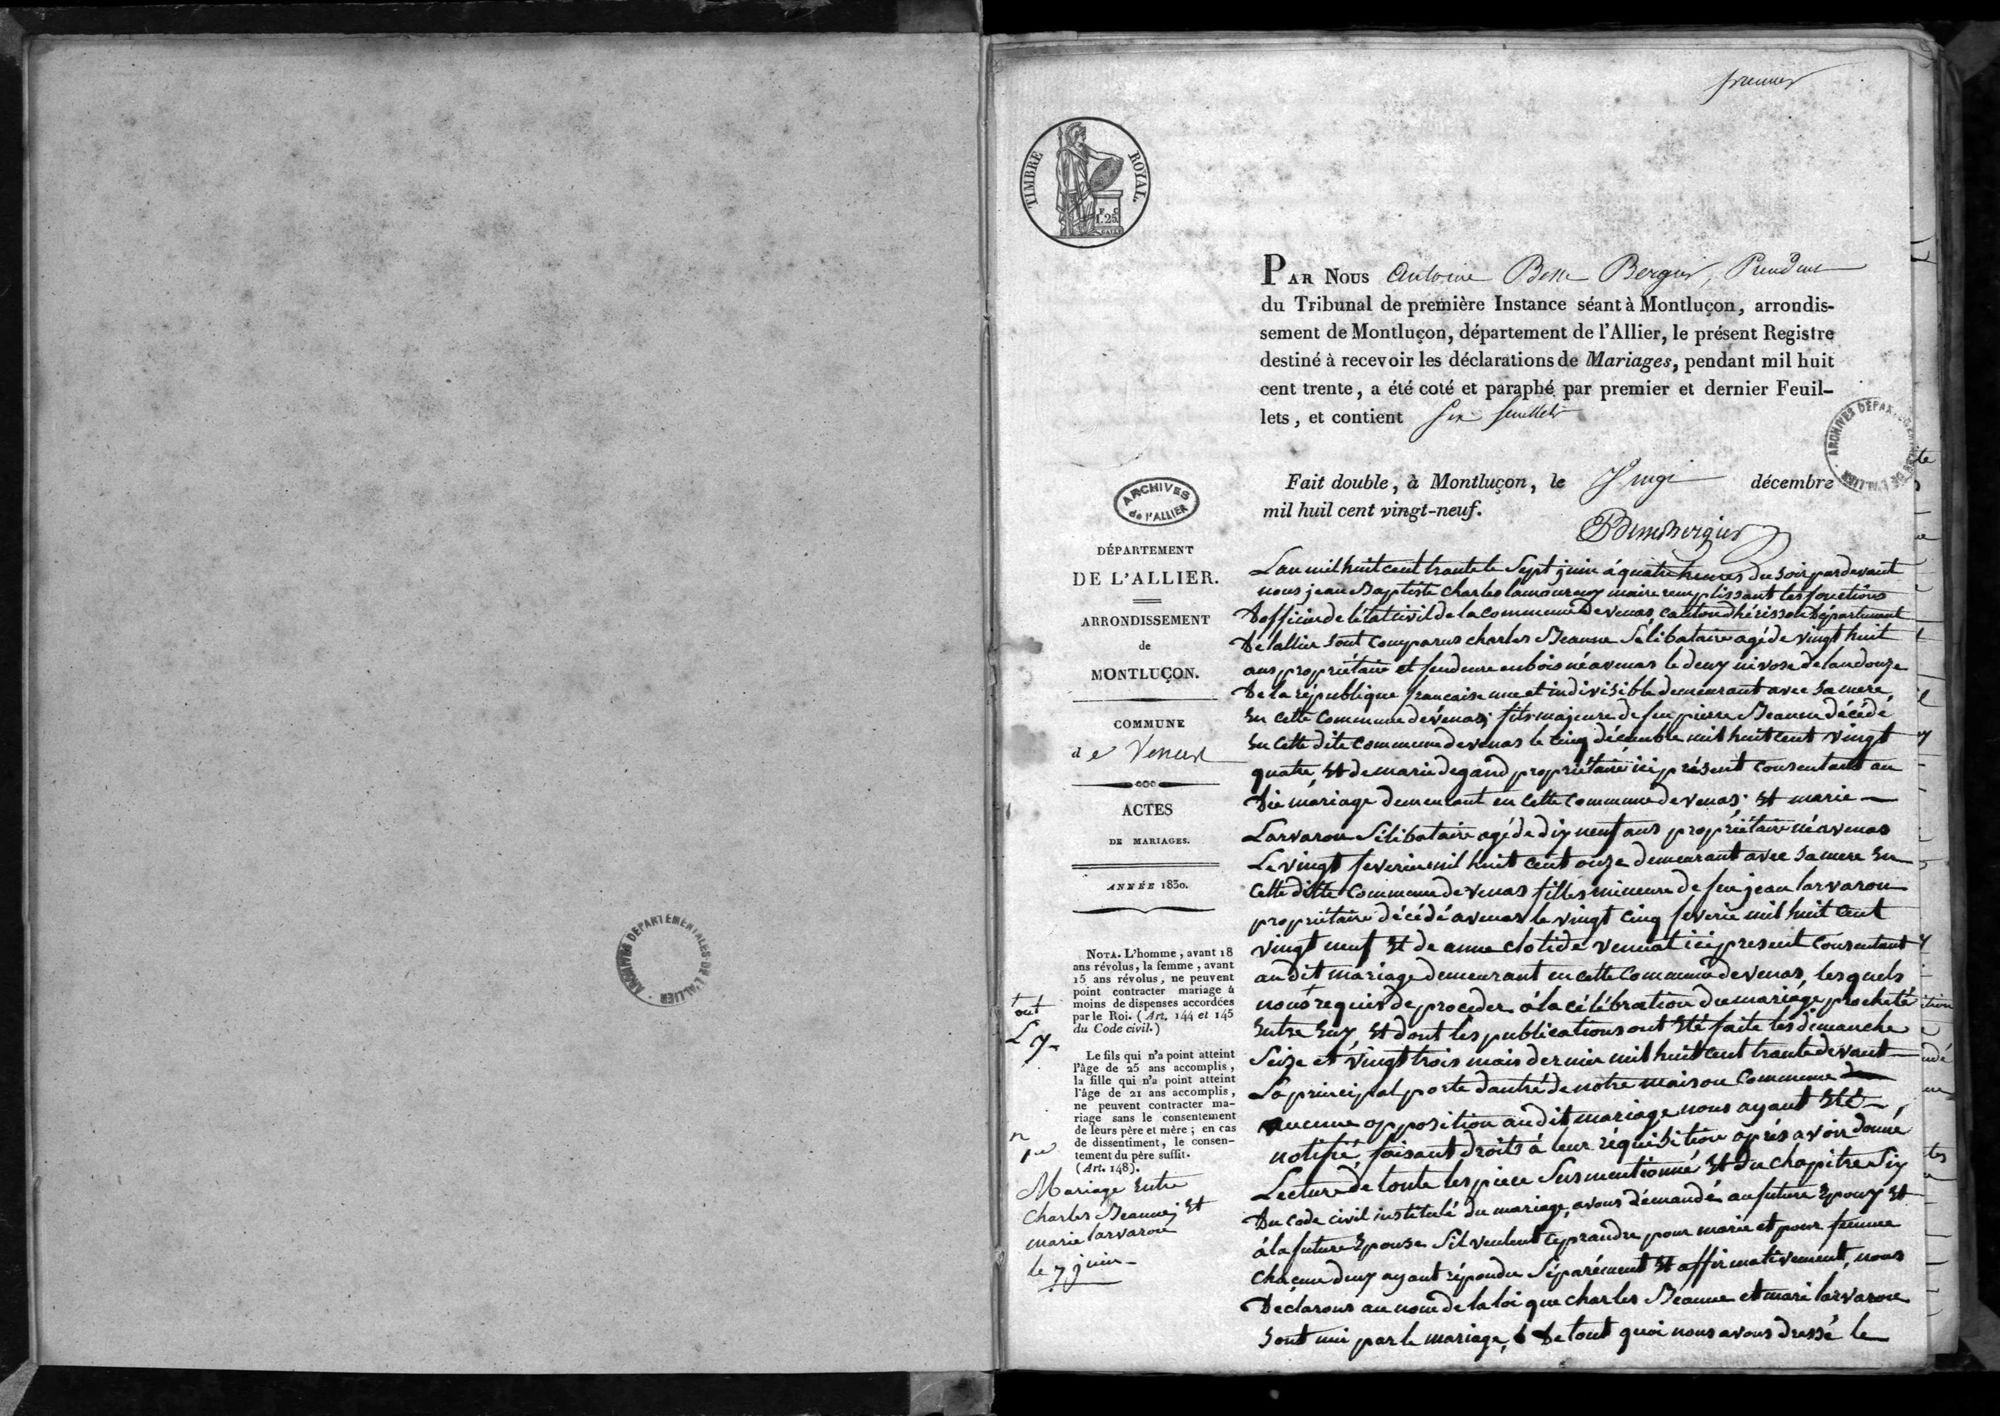 premier
TIMBRE ROYAL.
F. C.
1. 25.
PAR NOUS Antoine Besse Bergier, Président
du Tribunal de première Instance séant à Montluçon, arrondis-
sement de Montluçon, département de l'Allier, le présent Registre
destiné à recevoir les déclarations de Mariages, pendant mil huit
cent trente, a été coté et paraphé par premier et dernier Feuil-
lets, et contient six feuillets
ARCHIVES DÉPARTEMENTALES DE L'ALLIER
Fait double, à Montluçon, le Vingt décembre
mil huit cent vingt-neuf.
ARCHIVES
de l'ALLIER
DÉPARTEMENT
DE L'ALLIER.
ARRONDISSEMENT
de
MONTLUÇON.
COMMUNE
de Venas
ACTES
DE MARIAGES.
ANNÉE 1830.
NOTA. L'homme, avant 18
ans révolus, la femme, avant
15 ans révolus, ne peuvent
point contracter mariage à
moins de dispenses accordées
par le Roi. (Art. 144 et 145
du Code civil.)
Le fils qui n'a point atteint
l'âge de 25 ans accomplis,
la fille qui n'a point atteint
l'âge de 21 ans accomplis,
ne peuvent contracter ma-
riage sans le consentement
de leurs père et mère; en cas
de dissentiment, le consen-
tement du père suffit.
(Art. 148).
Mariage Entre
charles Jeanne Et
marie larvaron
le 7 juin
Lan mil huit cent trante le Sept juin à quatre heures du soir par devant
nous jean Baptiste charles lamoureux maire remplissant les fonctions
Dofficier de létat civil de la commune de venas canton dhérisson Département
De lallier sont comparus charles Jeanne Sélibataire agé de vingt huit
ans propriétaire et fendeure en bois né a venas le deux nivose de lan douze
De la république francaise une et indivisible demeurant avec sa mere,
En cette commune de venas; fils majeure de feu pierre Jeanne décédé
En cette dite commune de venas le cinq décembre mil huit cent vingt
quatre, Et de marie degand propriétaire ici présent consentant au
Dit mariage demeurant en cette commune de venas; Et marie
Larvaron Sélibataire agé de dix neuf ans propriétaire né a venas
Le vingt feverie mil huit cent onze demeurant avec sa mere En
cette ditte commune de venas filles mineure de feu jean larvaron
propriétaire décédé a venas le vingt cinq feverie mil huit cent
vingt neuf Et de anne clotide venuat ici present consentant
au dit mariage demeurant en cette commune de venas, lesquels
nous requis de proceder à la célébration du mariage procheté
Entre Eux, Et dont les publications ont Eté faite les dimanche
Seize et vingt trois mais dernier mil huit cent trante devant
La principal porte dantré de notre maison commune
aucune opposition au dit mariage nous ayant Eté
notifié, faisant droits à leur réquisition aprés avoir donné
Lecture de toute les piece Susmentionné Et du chapitre Six
Du code civil institulé du mariage, avons démandé au future Epoux Et
à la future Epouse Sil veulent ce prandre pour marie et pour femme
chacune deux ayant répondu Séparément Et affirmativement, nous
Declarons au nom de la loi que charles Jeanne et marie larvaron
sont unir par le mariage, De tout quoi nous avons dressé le
ARCHIVES DÉPARTEMENTALES DE L'ALLIER